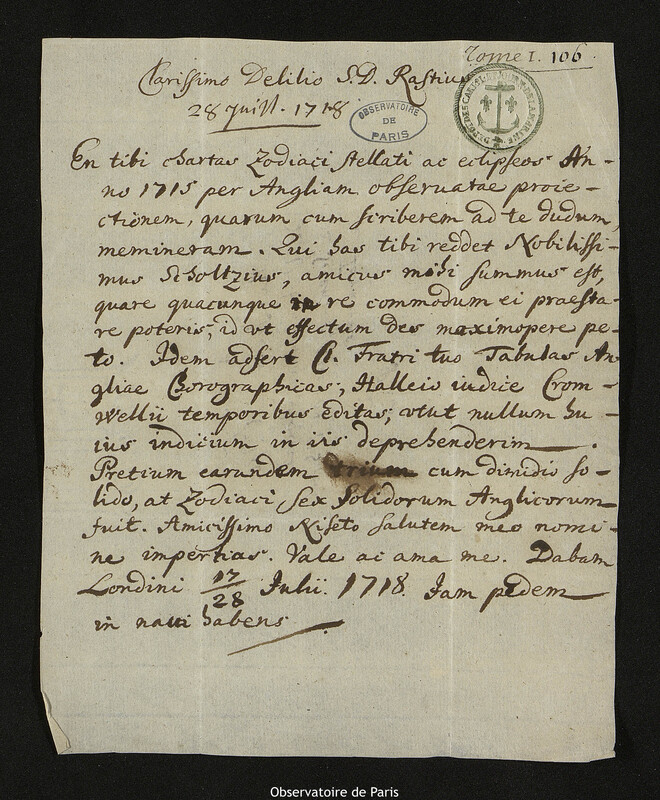 Tome I. 106
Clarissimo Delilio S. D. Rastius
28 Juill. 1718
OBSERVATOIRE
DE
PARIS
En tibi chartas Zodiaci stellati ac eclipseos An-
no 1715 per Angliam observatae proie-
ctionem, quarum cum scriberem ad te dudum
memineram. Qui has tibi reddet Nobilissi-
mus Scholtzius, amicus mihi summus est,
quare quacunque in re commodum ei praesta-
re poteris, id vt effectum des maximopere pe-
to. Idem adfert Cl. Fratri tuo Tabulas An
gliae Chorographicas, Halleio iudice Crom-
wellii temporibus editas, vtut nullum hu-
ius indicium in iis deprehenderim.
Pretium earundem trium cum dimidio so-
lido, at Zodiaci sex solidorum Anglicorum
fuit. Amicissimo Niseto salutem meo nomi-
ne impertias. Vale ac ama me. Dabam
Londini 17/28 Julii. 1718. Jam pedem
in navi habens
Observatoire de Paris